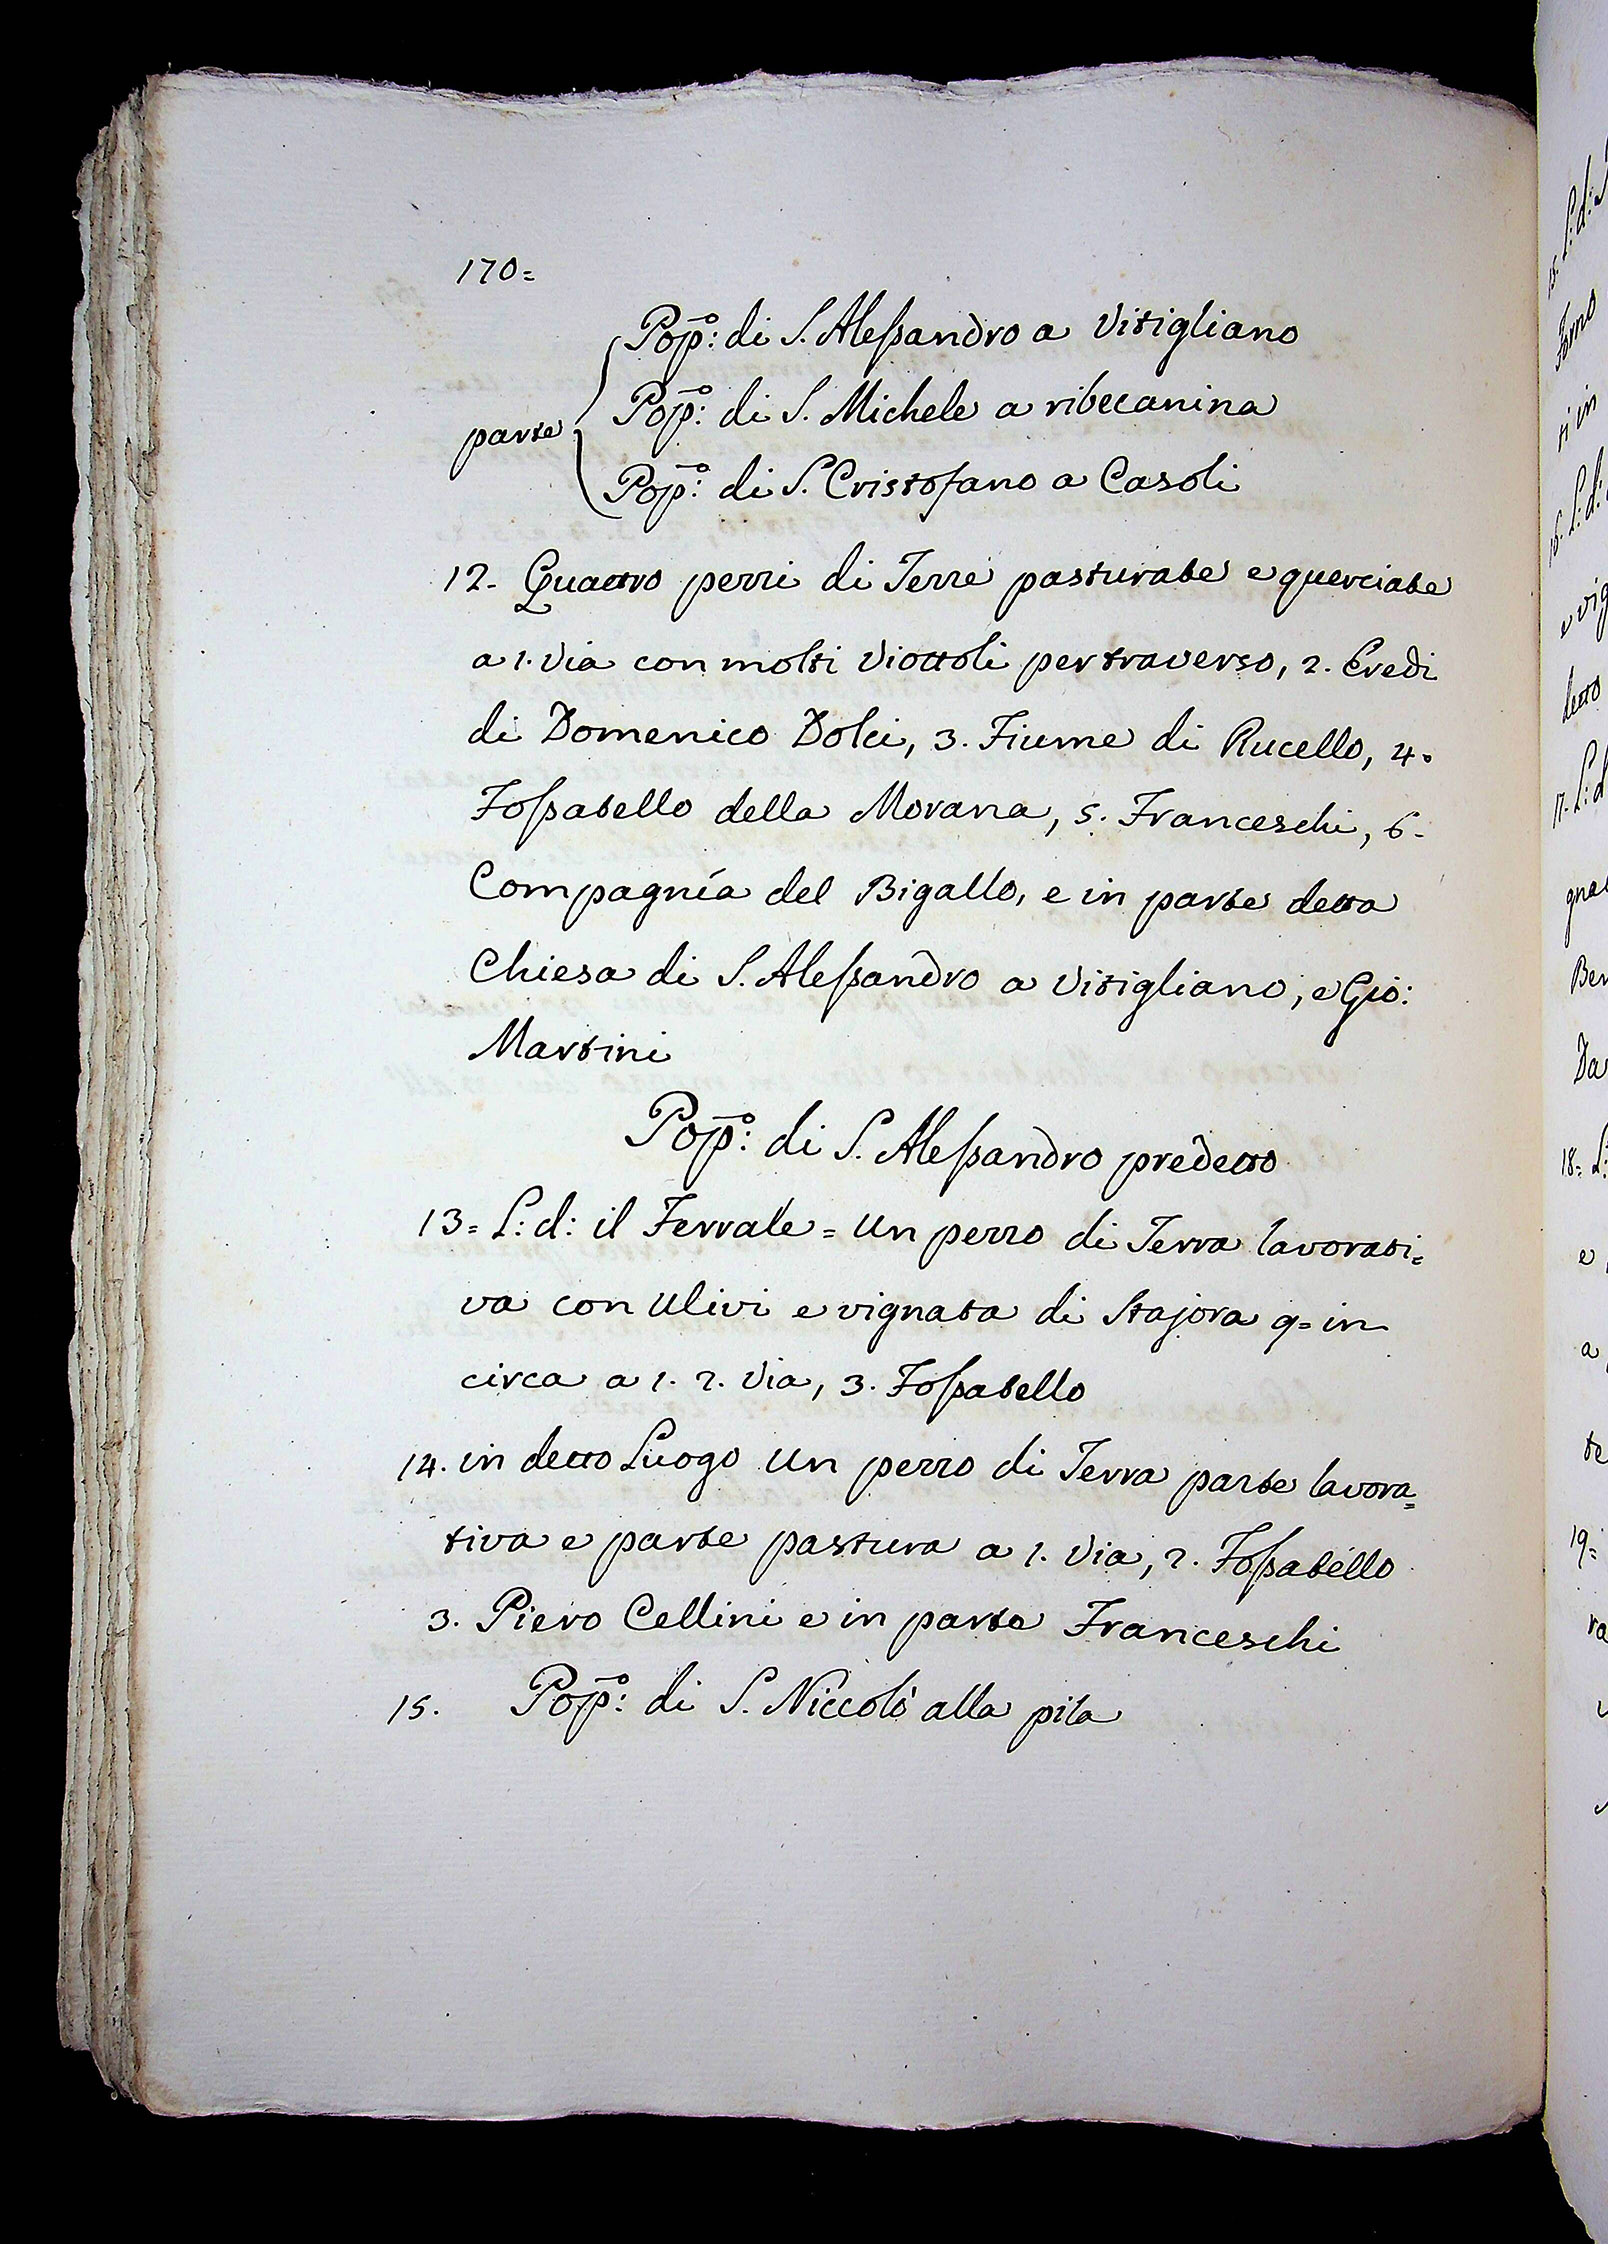 170=
Pop̄o: di S. Alessandro a Vitigliano
parte
Pop̄o: di S. Michele a ribecanina
Pop̄o: di S. Cristofano a Casoli
12. Quattro pezzi di Terre pasturate e querciate
a 1. Via con molti Viottoli per traverso, 2. Eredi
di Domenico Dolci, 3. Fiume di Rucello, 4.
Fossatello della Morana, 5. Franceschi, 6.
Compagnía del Bigallo, e in parte detta
Chiesa di S. Alessandro a Vitigliano, e Gio:
Martini
Pop̄o: di S. Alessandro predetto
13= L: d: il Ferrale = Un pezzo di Terra lavorati=
va con Ulivi e vignata di Stajora 9= in
circa a 1. 2. Via, 3. Fossatello
14. in detto Luogo Un pezzo di Terra parte lavora=
tiva e parte pastura a 1. Via, 2. Fossatello
3. Piero Cellini e in parte Franceschi
15. Pop̄o: di S. Niccolò alla pila
15. L: d:
Forno
ti in
16. L: d:
e vig
detto
17. L: d
gna
Ber
Da
18= L:
e
a
te
19=
ra